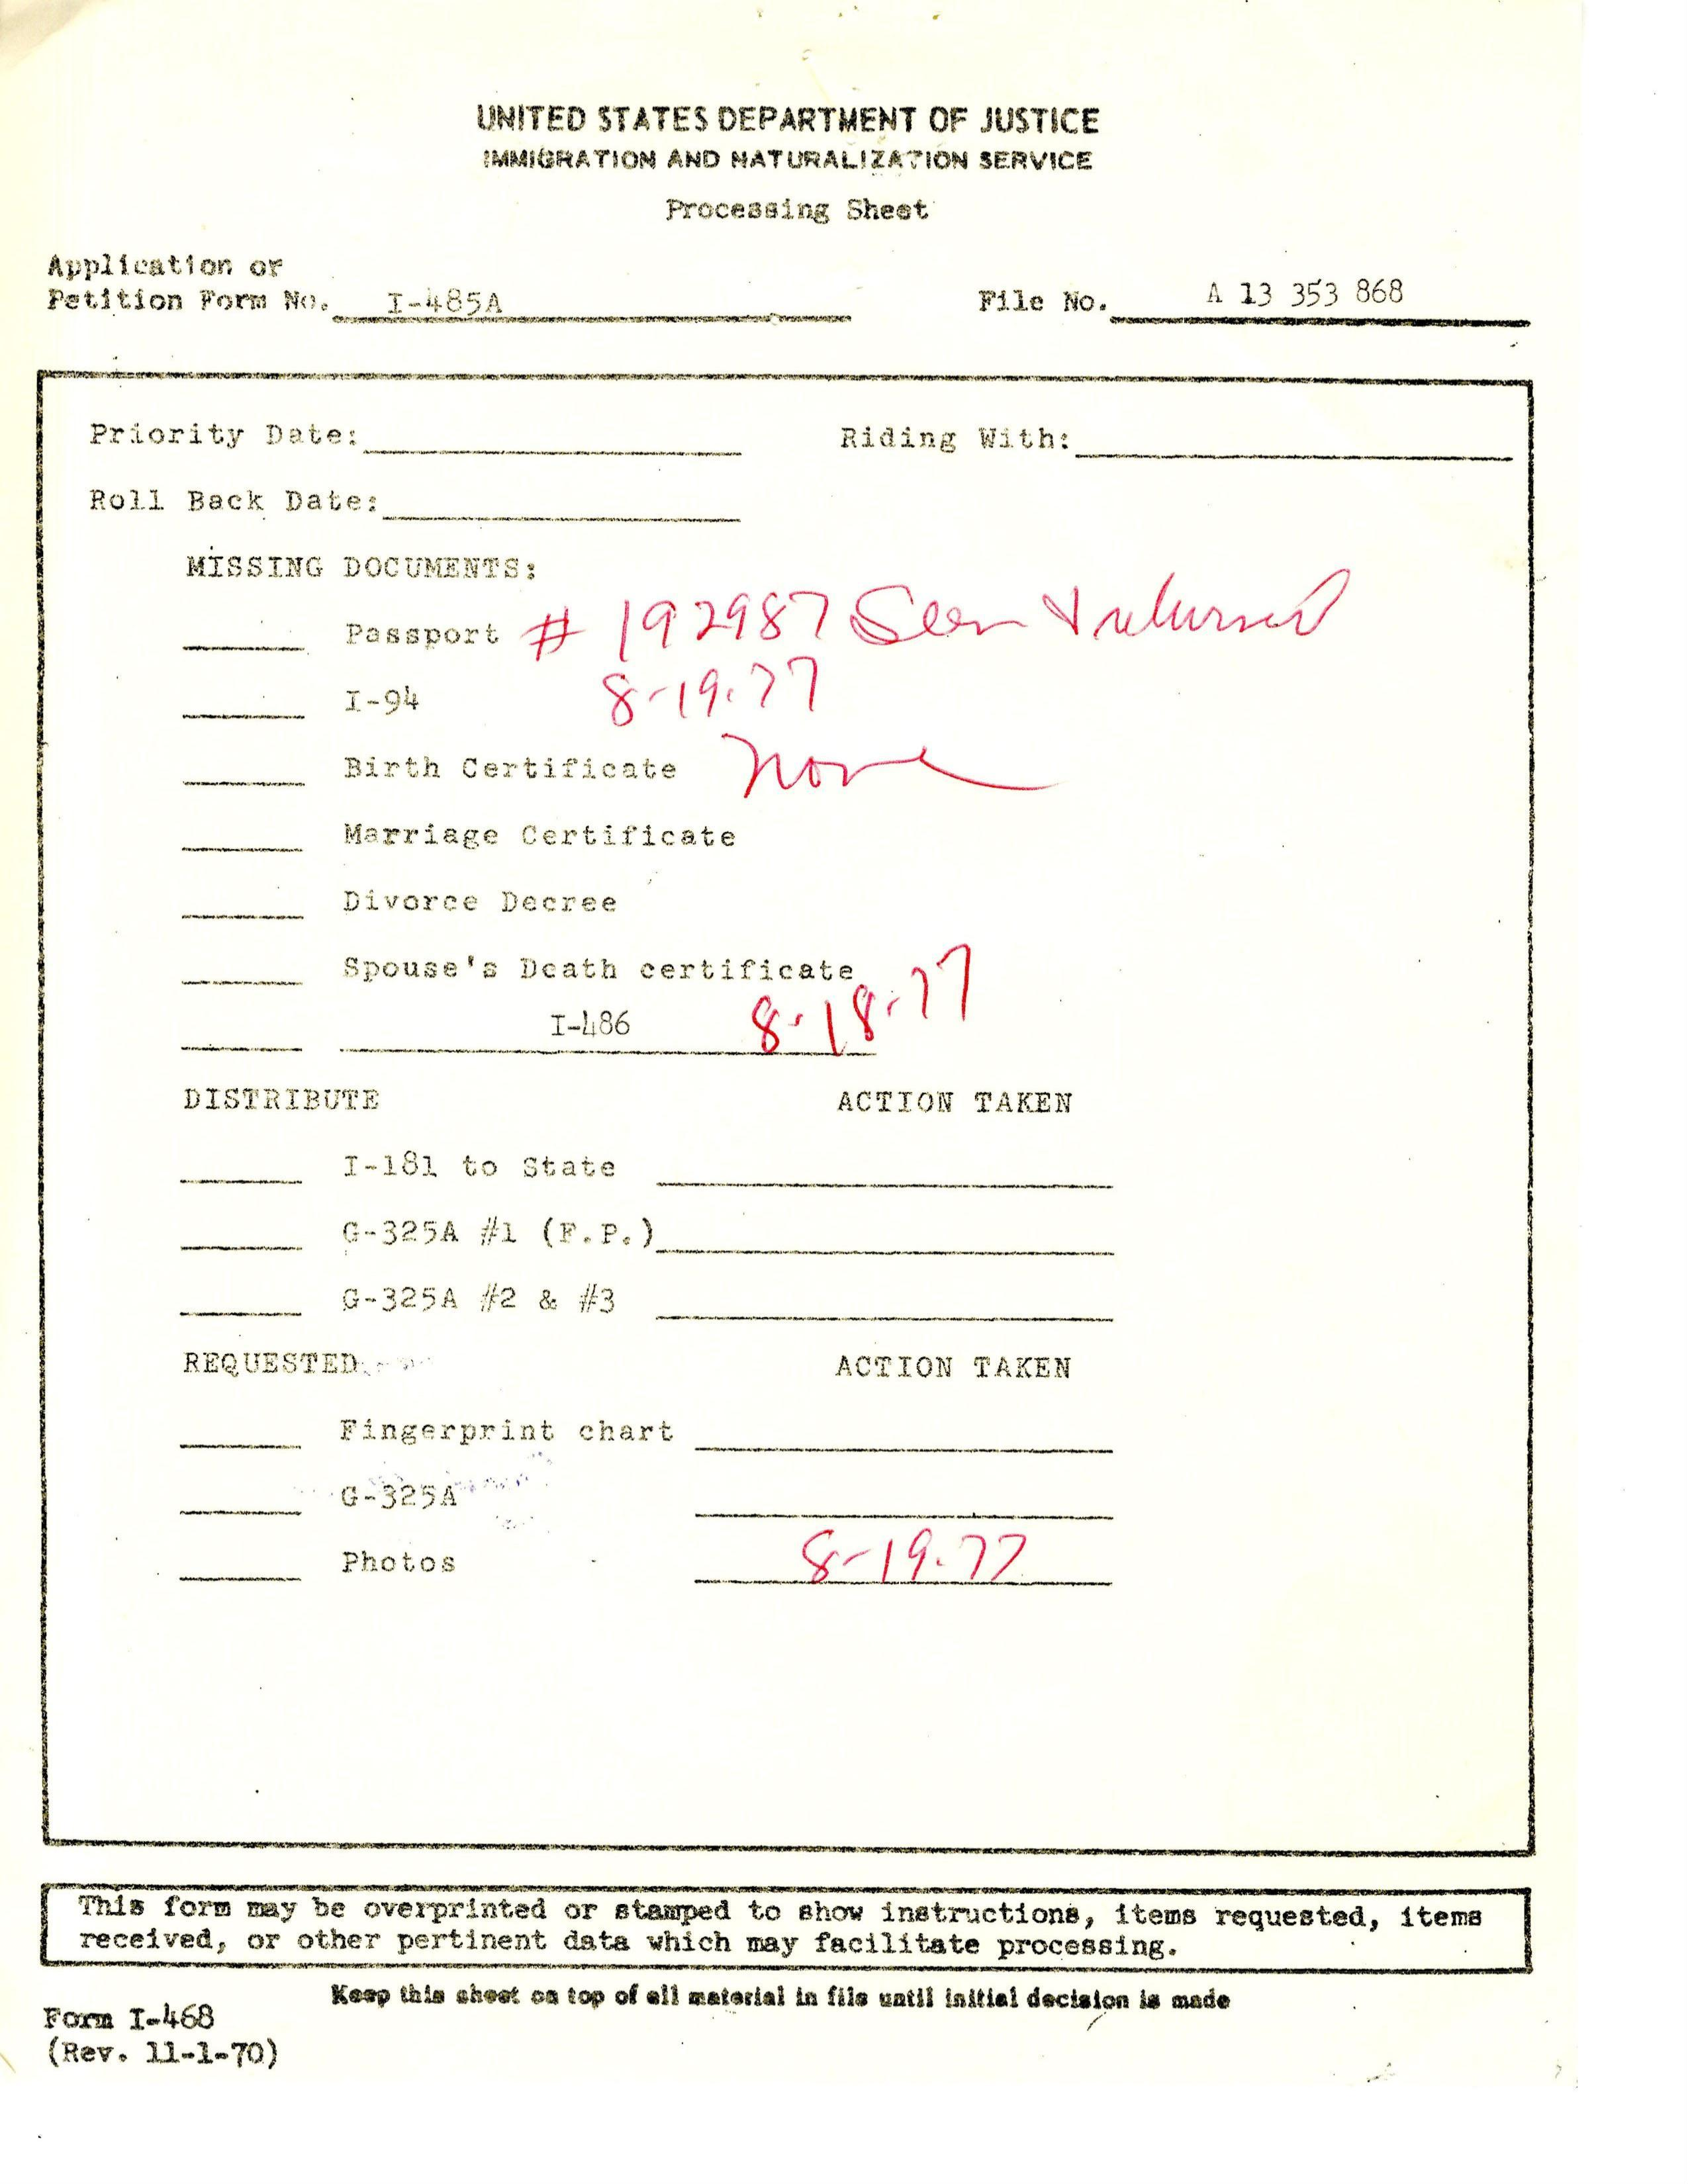 UNITED STATES DEPARTMENT OF JUSTICE
IMMIGRATION AND NATURALIZATION SERVICE
Processing Sheet
Application or
Petition Form No. I-485A File No. A 13 353 868
Priority Date: Riding With:
Roll Back Date:
MISSING DOCUMENTS:
Passport # 192987 Seen & returned
I-94 8-19-77
Birth Certificate None
Marriage Certificate
Divorce Decree
Spouse's Death certificate
I-486 8-18-77
DISTRIBUTE ACTION TAKEN
I-181 to State
G-325A #1 (F.P.)
G-325A #2 & #3
REQUESTED ACTION TAKEN
Fingerprint chart
G-325A
Photos 8-19-77
This form may be overprinted or stamped to show instructions, items requested, items
received, or other pertinent data which may facilitate processing.
Keep this sheet on top of all material in file until initial decision is made
Form I-468
(Rev. 11-1-70)